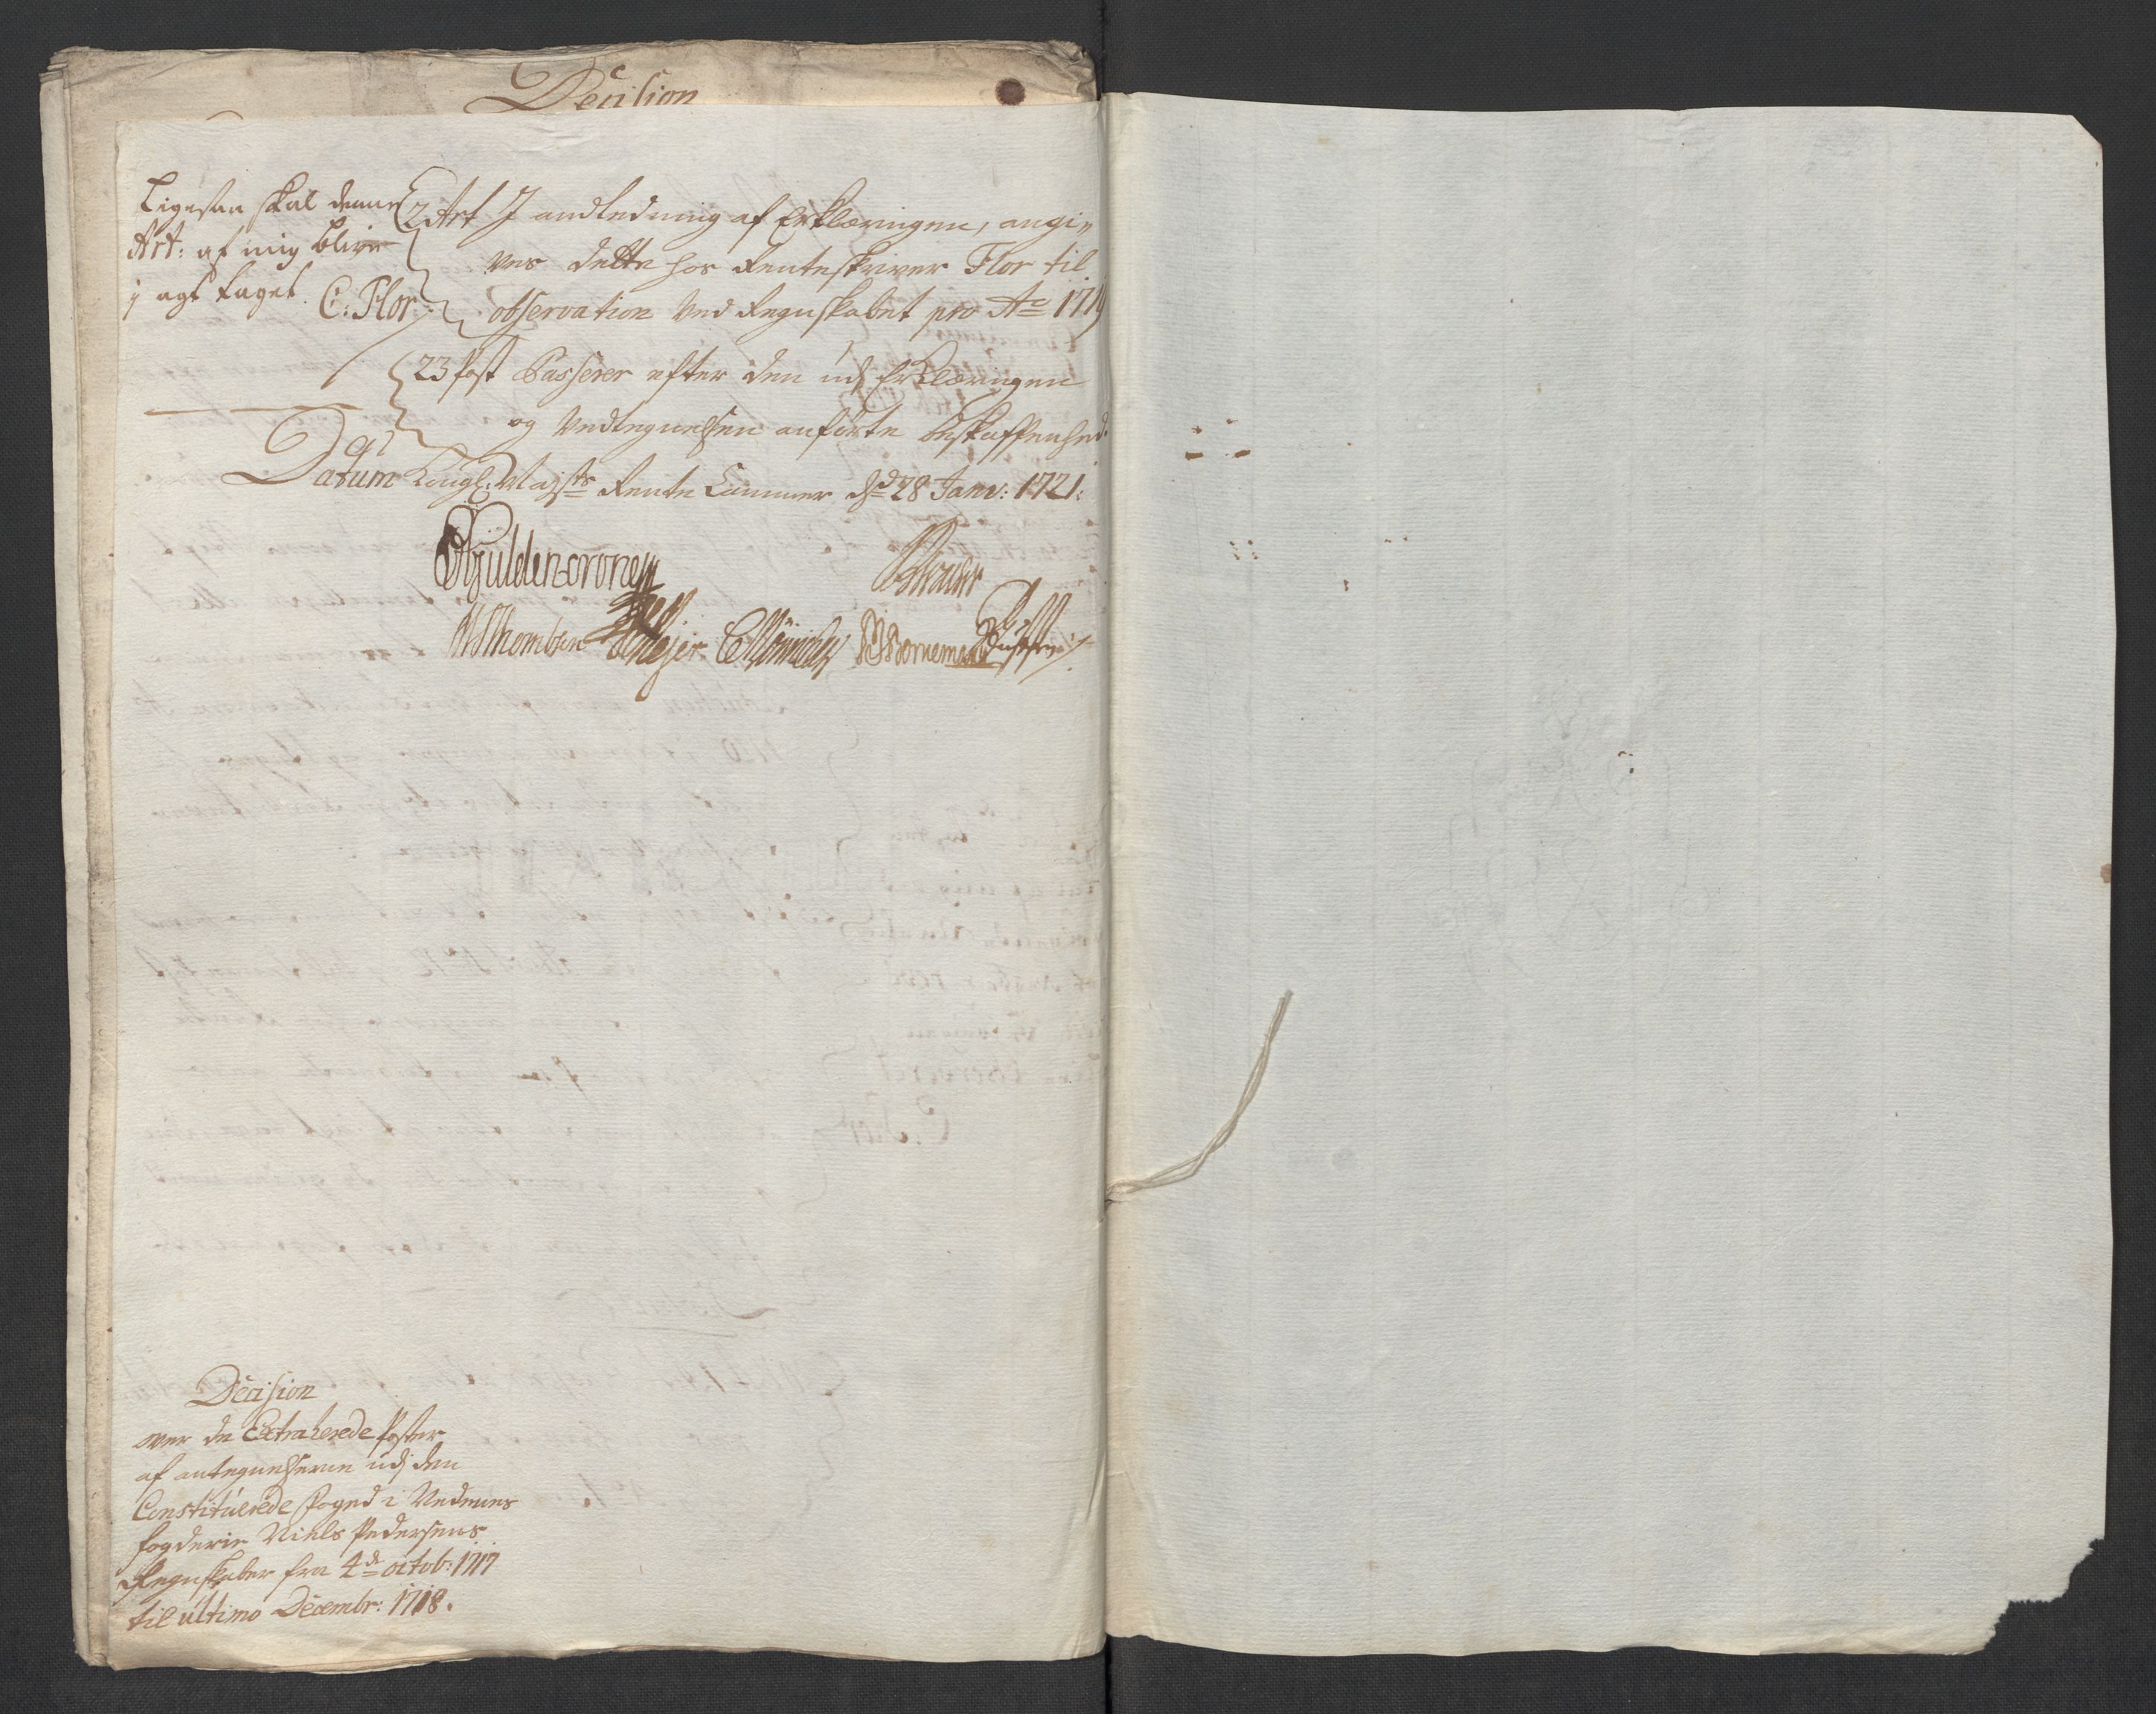 Decision
Ligesaa skal denne
Art: af mig blive
i agt taget. C: Flor
2 Art I andledning af Erklæringen, angi„
ves dette hos Renteskriver Flor til
observation ved Regnskabet pro Ao 1719
23 Post Passerer efter den udj Erklæringen
og Vedtegnelsen anførte beskaffenhed.
Datum Kongl: Mayts Rente Cammer dend 28 Janv: 1721.
Güldencrone
WThomsen Meyer CMönnich Bornemann
Decision
over de Extraherede Poster
af antegnelserne udj den
Constituerede foged i Nedenes
fogderie Niels Pedersens
Regnskaber fra 4de octob: 1717
til ultimo Decembr: 1718.